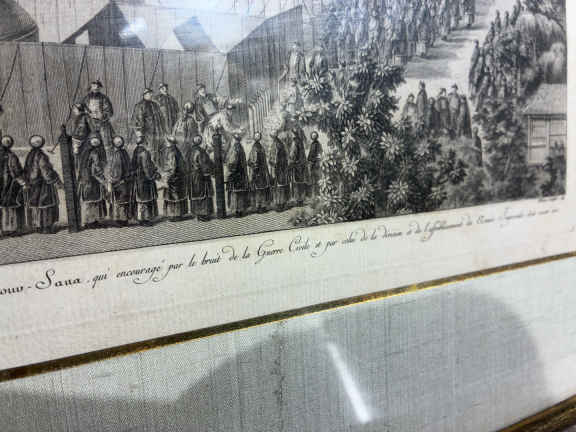 ouw-Sana, qui encouragé par le bruit de la Guerre Civile et par celui de la division et de l'affoiblissement du